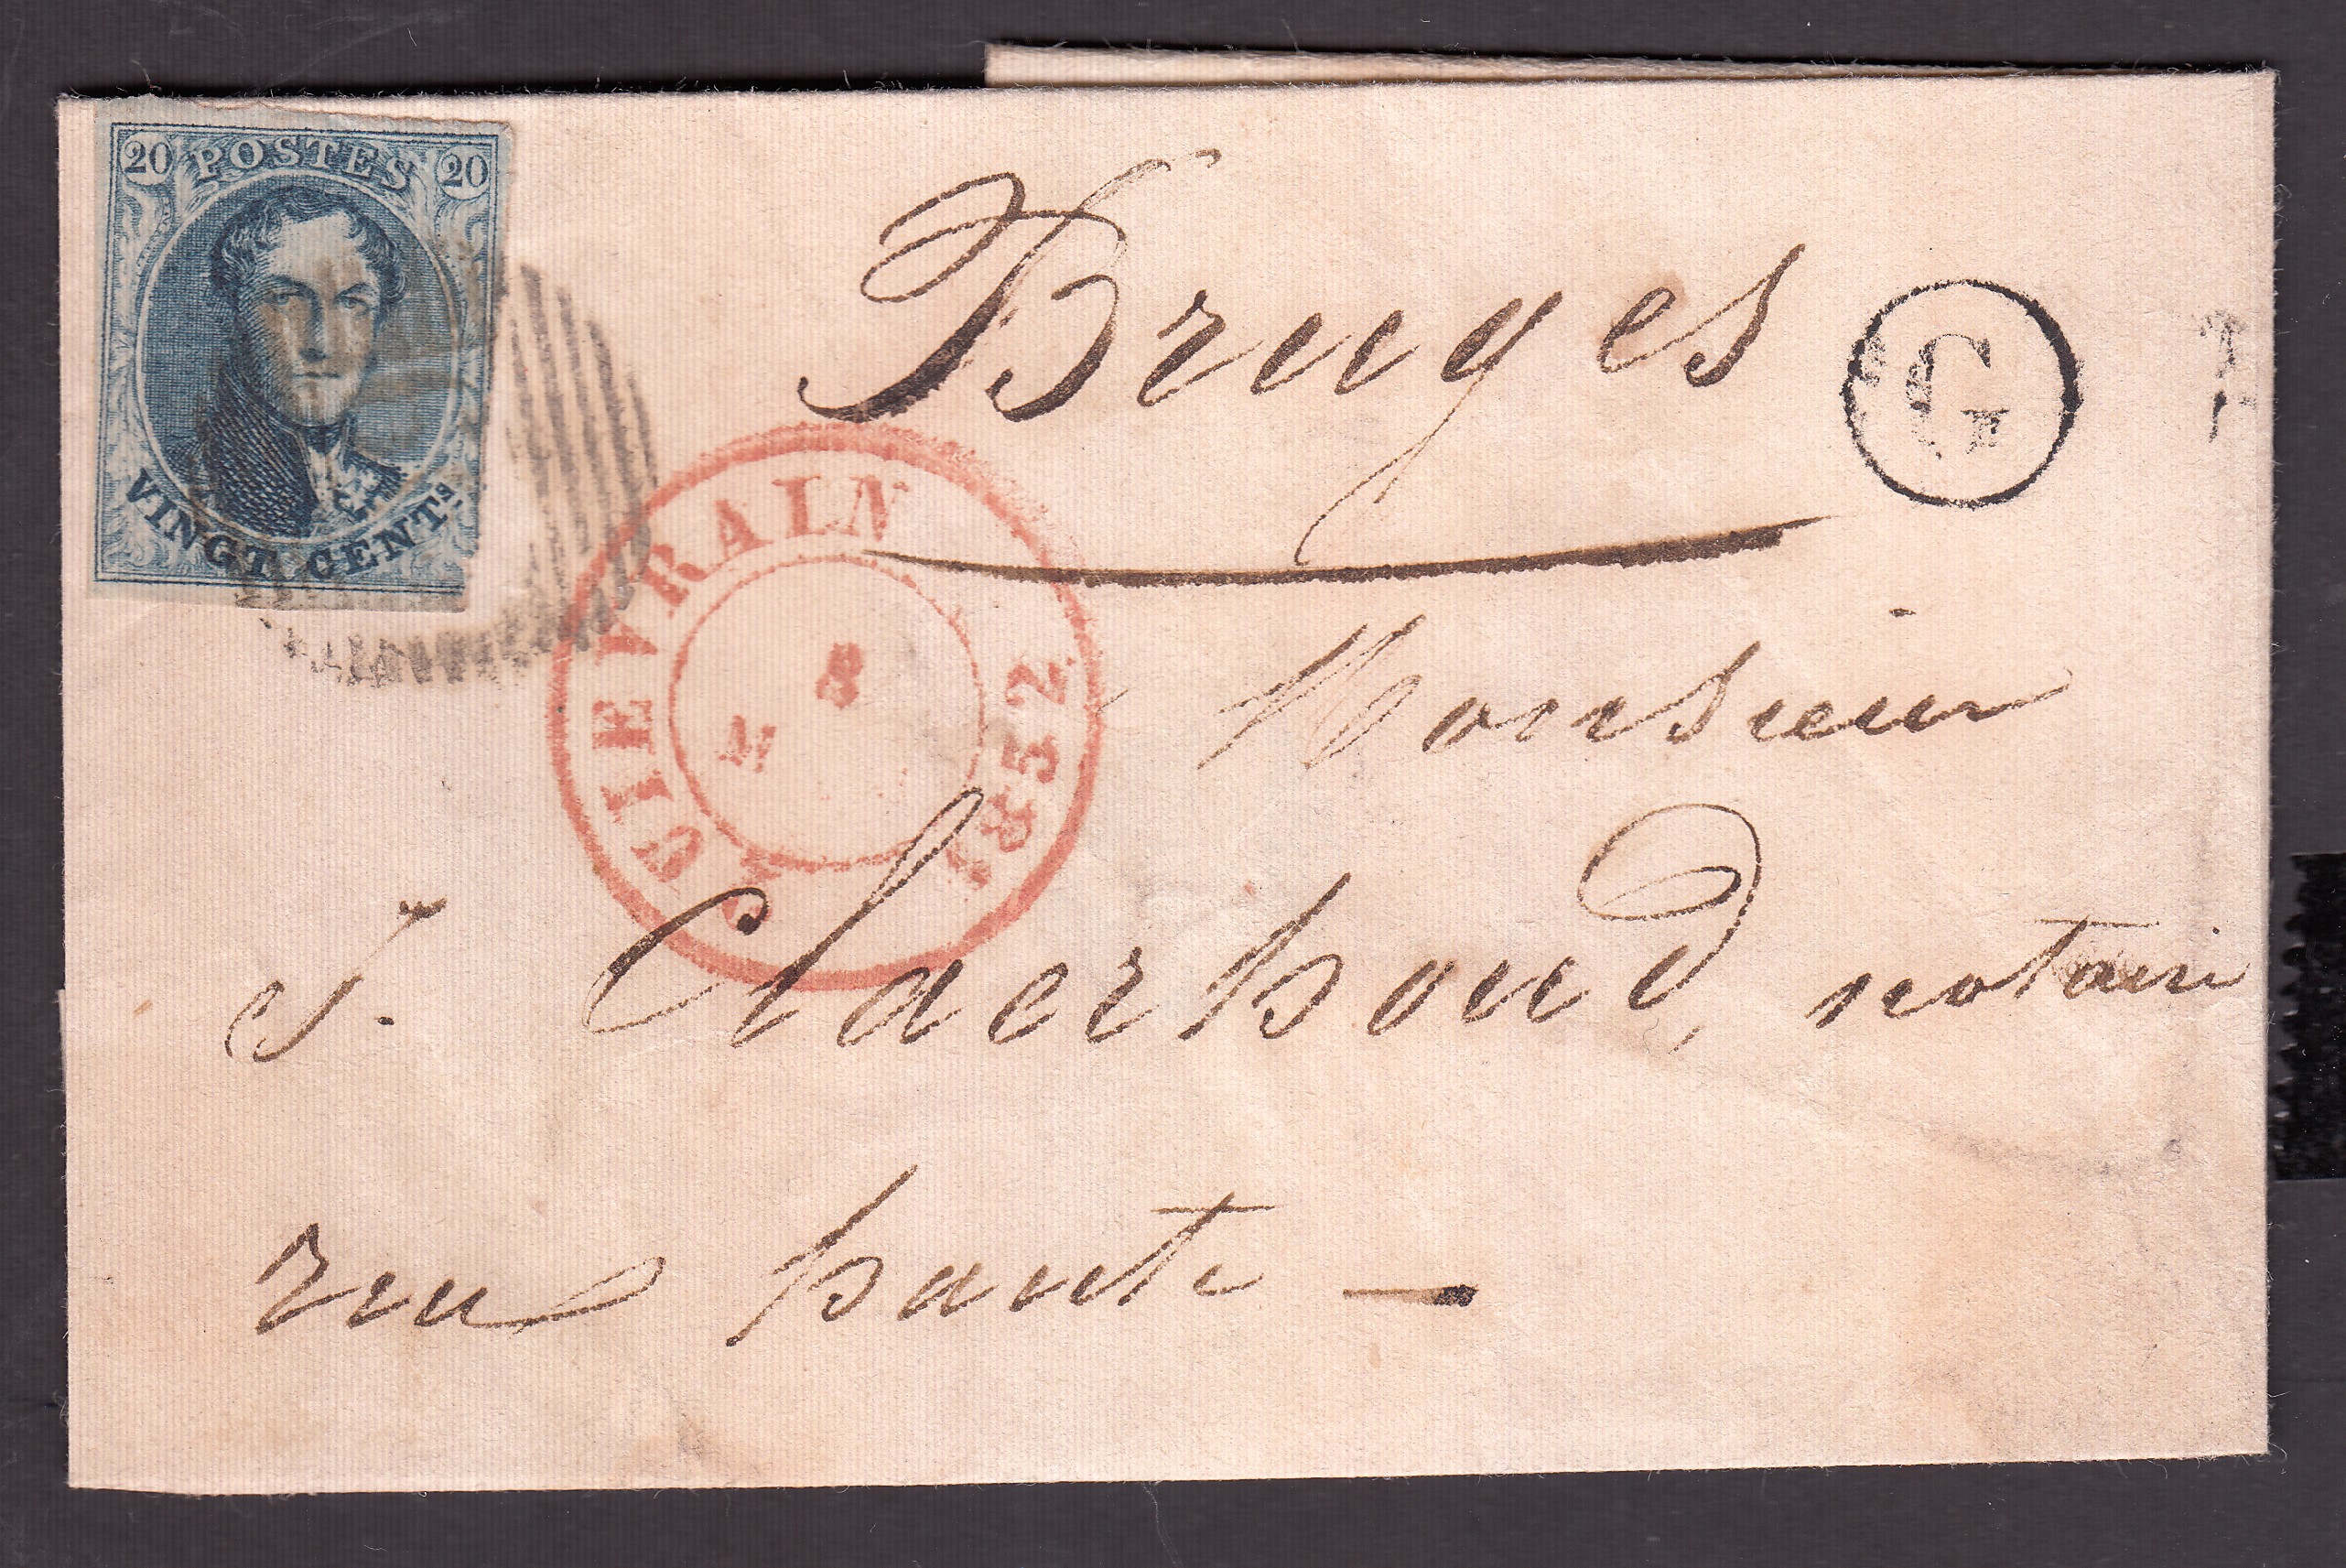 20 POSTES 20
VINGT CENTS.
Bruges
G
QUIEVRAIN
8
1852
Monsieur
J. Claerhoud, notaire
rue haute —